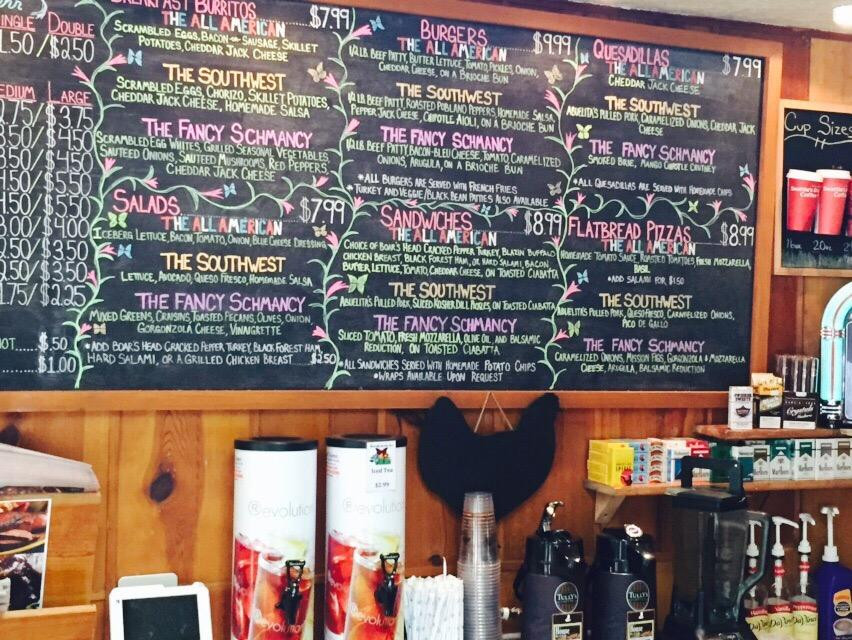 SINGLE DOUBLE
/$2.50
LARGE
$3.75
BREAKFAST BURRITOS
THE ALL AMERICAN $7.99
SCRAMBLED EGGS, BACON OR SAUSAGE, SKILLET
POTATOES, CHEDDAR JACK CHEESE
THE SOUTHWEST
SCRAMBLED EGGS, CHORIZO, SKILLET POTATOES,
CHEDDAR JACK CHEESE, HOMEMADE SALSA
THE FANCY SCHMANCY
SCRAMBLED EGG WHITES, GRILLED SEASONAL VEGETABLES,
SAUTEED ONIONS, SAUTEED MUSHROOMS, RED PEPPERS,
CHEDDAR JACK CHEESE
SALADS $7.99
THE ALL AMERICAN
ICEBERG LETTUCE, BACON, TOMATO, ONION, BLUE CHEESE DRESSING
THE SOUTHWEST
LETTUCE, AVOCADO, QUESO FRESCO, HOMEMADE SALSA
THE FANCY SCHMANCY
MIXED GREENS, CRAISINS, TOASTED PECANS, OLIVES, ONION,
GORGONZOLA CHEESE, VINAIGRETTE
*ADD BOAR'S HEAD CRACKED PEPPER TURKEY, BLACK FOREST HAM,
HARD SALAMI, OR A GRILLED CHICKEN BREAST $2.50
$.50
$1.00
BURGERS $9.99
THE ALL AMERICAN
1/2 LB BEEF PATTY, BUTTER LETTUCE, TOMATO, PICKLES, ONION,
CHEDDAR CHEESE, ON A BRIOCHE BUN
THE SOUTHWEST
1/2 LB BEEF PATTY, ROASTED POBLANO PEPPERS, HOMEMADE SALSA,
PEPPER JACK CHEESE, CHIPOTLE AIOLI, ON A BRIOCHE BUN
THE FANCY SCHMANCY
1/2 LB BEEF PATTY, BACON-BLEU CHEESE, TOMATO, CARAMELIZED
ONIONS, ARUGULA, ON A BRIOCHE BUN
*ALL BURGERS ARE SERVED WITH FRENCH FRIES
*TURKEY AND VEGGIE/BLACK BEAN PATTIES ALSO AVAILABLE
SANDWICHES $8.99
THE ALL AMERICAN
CHOICE OF BOAR'S HEAD CRACKED PEPPER TURKEY, BLAZIN BUFFALO
CHICKEN BREAST, BLACK FOREST HAM, OR HARD SALAMI, BACON,
BUTTER LETTUCE, TOMATO, CHEDDAR CHEESE, ON TOASTED CIABATTA
THE SOUTHWEST
ABUELITA'S PULLED PORK, SLICED KOSHER DILL PICKLES, ON TOASTED CIABATTA
THE FANCY SCHMANCY
SLICED TOMATO, FRESH MOZZARELLA, OLIVE OIL AND BALSAMIC
REDUCTION, ON TOASTED CIABATTA
*ALL SANDWICHES SERVED WITH HOMEMADE POTATO CHIPS
*WRAPS AVAILABLE UPON REQUEST
QUESADILLAS $7.99
THE ALL AMERICAN
CHEDDAR JACK CHEESE
THE SOUTHWEST
ABUELITA'S PULLED PORK, CARAMELIZED ONIONS, CHEDDAR JACK
CHEESE
THE FANCY SCHMANCY
SMOKED BRIE, MANGO CHIPOTLE CHUTNEY
*ALL QUESADILLAS ARE SERVED WITH HOMEMADE CHIPS
FLATBREAD PIZZAS $8.99
THE ALL AMERICAN
HOMEMADE TOMATO SAUCE, ROASTED TOMATOES, FRESH MOZZARELLA,
BASIL
*ADD SALAMI FOR $1.50
THE SOUTHWEST
ABUELITA'S PULLED PORK, QUESO FRESCO, CARAMELIZED ONIONS,
PICO DE GALLO
THE FANCY SCHMANCY
CARAMELIZED ONIONS, MISSION FIGS, GORGONZOLA & MOZZARELLA
CHEESE, ARUGULA, BALSAMIC REDUCTION
CUP SIZES
Seattle's Best
Coffee
Iced Tea
$2.99
Revolution
Revolution
TULLY'S
TULLY'S
House
Marlboro
Marlboro
DaVinci
DaVinci